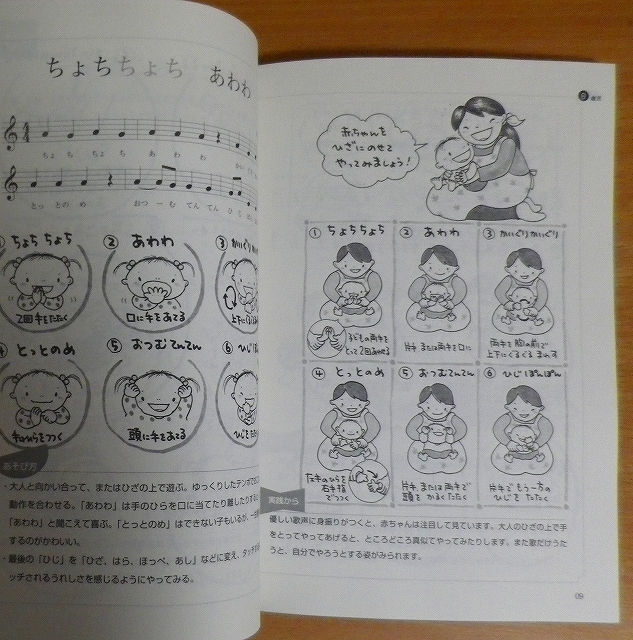 ちょちちょち あわわ
ちょち ちょち あわわ
とっとのめ おつーむ てんてん
① ちょち ちょち
2回手をたたく
② あわわ
口に手をあてる
③ かいぐりか
上下にくるくる
④ とっとのめ
⑤ おつむてんてん
頭に手をあてる
⑥ ひじぽ
ひじをた
あそび方
・大人と向かい合って、またはひざの上で遊ぶ。ゆっくりしたテンポで
動作を合わせる。「あわわ」は手のひらを口に当てたり離したり
「あわわ」と聞こえて喜ぶ。「とっとのめ」はできない子もいるが、
するのがかわいい。
・最後の「ひじ」を「ひざ、はら、ほっぺ、あし」などに変え、タッチ
ッチされるうれしさを感じるようにやってみる。
赤ちゃんを
ひざにのせて
やってみましょう!
① ちょちちょち
子どもの両手を
とって2回あわせる
② あわわ
片手または両手を口に
③ かいぐりかいぐり
両手を胸の前で
上下にぐるぐるまわす
④ とっとのめ
左手のひらを
右手指
でつつく
⑤ おつむてんてん
片手または両手で
頭をかるくたたく
⑥ ひじぽんぽん
片手でもう一方の
ひじをたたく
実践から
優しい歌声に身振りがつくと、赤ちゃんは注目して見ています。大人のひざの上で手
をとってやってあげると、ところどころ真似てやってみたりします。また歌だけうた
うと、自分でやろうとする姿がみられます。
09